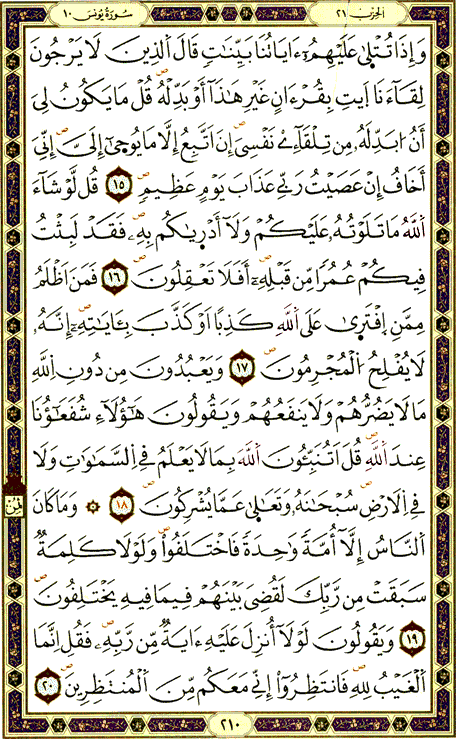 الحزب ٢١
سورة يونس ١٠
وَإِذَا تُتْلَىٰ عَلَيْهِمُۥٓ ءَايَاتُنَا بَيِّنَٰتٍ قَالَ ٱلَّذِينَ لَا يَرْجُونَ
لِقَآءَنَا ٱيتِ بِقُرْءَانٍ غَيْرِ هَٰذَآ أَوْ بَدِّلْهُ قُلْ مَا يَكُونُ لِيَ
أَنُ ابَدِّلَهُۥ مِن تِلْقَآءِےْ نَفْسِيَ إِنَ اَتَّبِعُ إِلَّا مَا يُوحَىٰٓ إِلَيَّ إِنِّيَ
أَخَافُ إِنْ عَصَيْتُ رَبِّي عَذَابَ يَوْمٍ عَظِيمٍ ١٥ قُل لَّوْ شَآءَ
ٱللَّهُ مَا تَلَوْتُهُۥ عَلَيْكُمْ وَلَآ أَدْرَىٰكُم بِهِۦ فَقَدْ لَبِثْتُ
فِيكُمْ عُمُرًا مِّن قَبْلِهِۦٓ أَفَلَا تَعْقِلُونَ ١٦ فَمَنَ اَظْلَمُ
مِمَّنِ اِفْتَرَىٰ عَلَى ٱللَّهِ كَذِبًا اَوْ كَذَّبَ بِـَٔايَٰتِهِۦٓ إِنَّهُۥ
لَا يُفْلِحُ ٱلْمُجْرِمُونَ ١٧ وَيَعْبُدُونَ مِن دُونِ ٱللَّهِ
مَا لَا يَضُرُّهُمْ وَلَا يَنفَعُهُمْ وَيَقُولُونَ هَٰٓؤُلَآءِ شُفَعَٰٓؤُنَا
عِندَ ٱللَّهِ قُلَ اَتُنَبِّـُٔونَ ٱللَّهَ بِمَا لَا يَعْلَمُ فِي ٱلسَّمَٰوَٰتِ وَلَا
فِي اِلَارْضِ سُبْحَٰنَهُۥ وَتَعَٰلَىٰ عَمَّا يُشْرِكُونَ ١٨ ۞ وَمَا كَانَ
ٱلنَّاسُ إِلَّآ أُمَّةً وَٰحِدَةً فَاخْتَلَفُواْ وَلَوْلَا كَلِمَةٌ
سَبَقَتْ مِن رَّبِّكَ لَقُضِيَ بَيْنَهُمْ فِيمَا فِيهِ يَخْتَلِفُونَ
١٩ وَيَقُولُونَ لَوْلَآ أُنزِلَ عَلَيْهِ ءَايَةٌ مِّن رَّبِّهِۦ فَقُلِ اِنَّمَا
ٱلْغَيْبُ لِلهِ فَانتَظِرُوٓاْ إِنِّي مَعَكُم مِّنَ ٱلْمُنتَظِرِينَ ٢٠
٢١٠